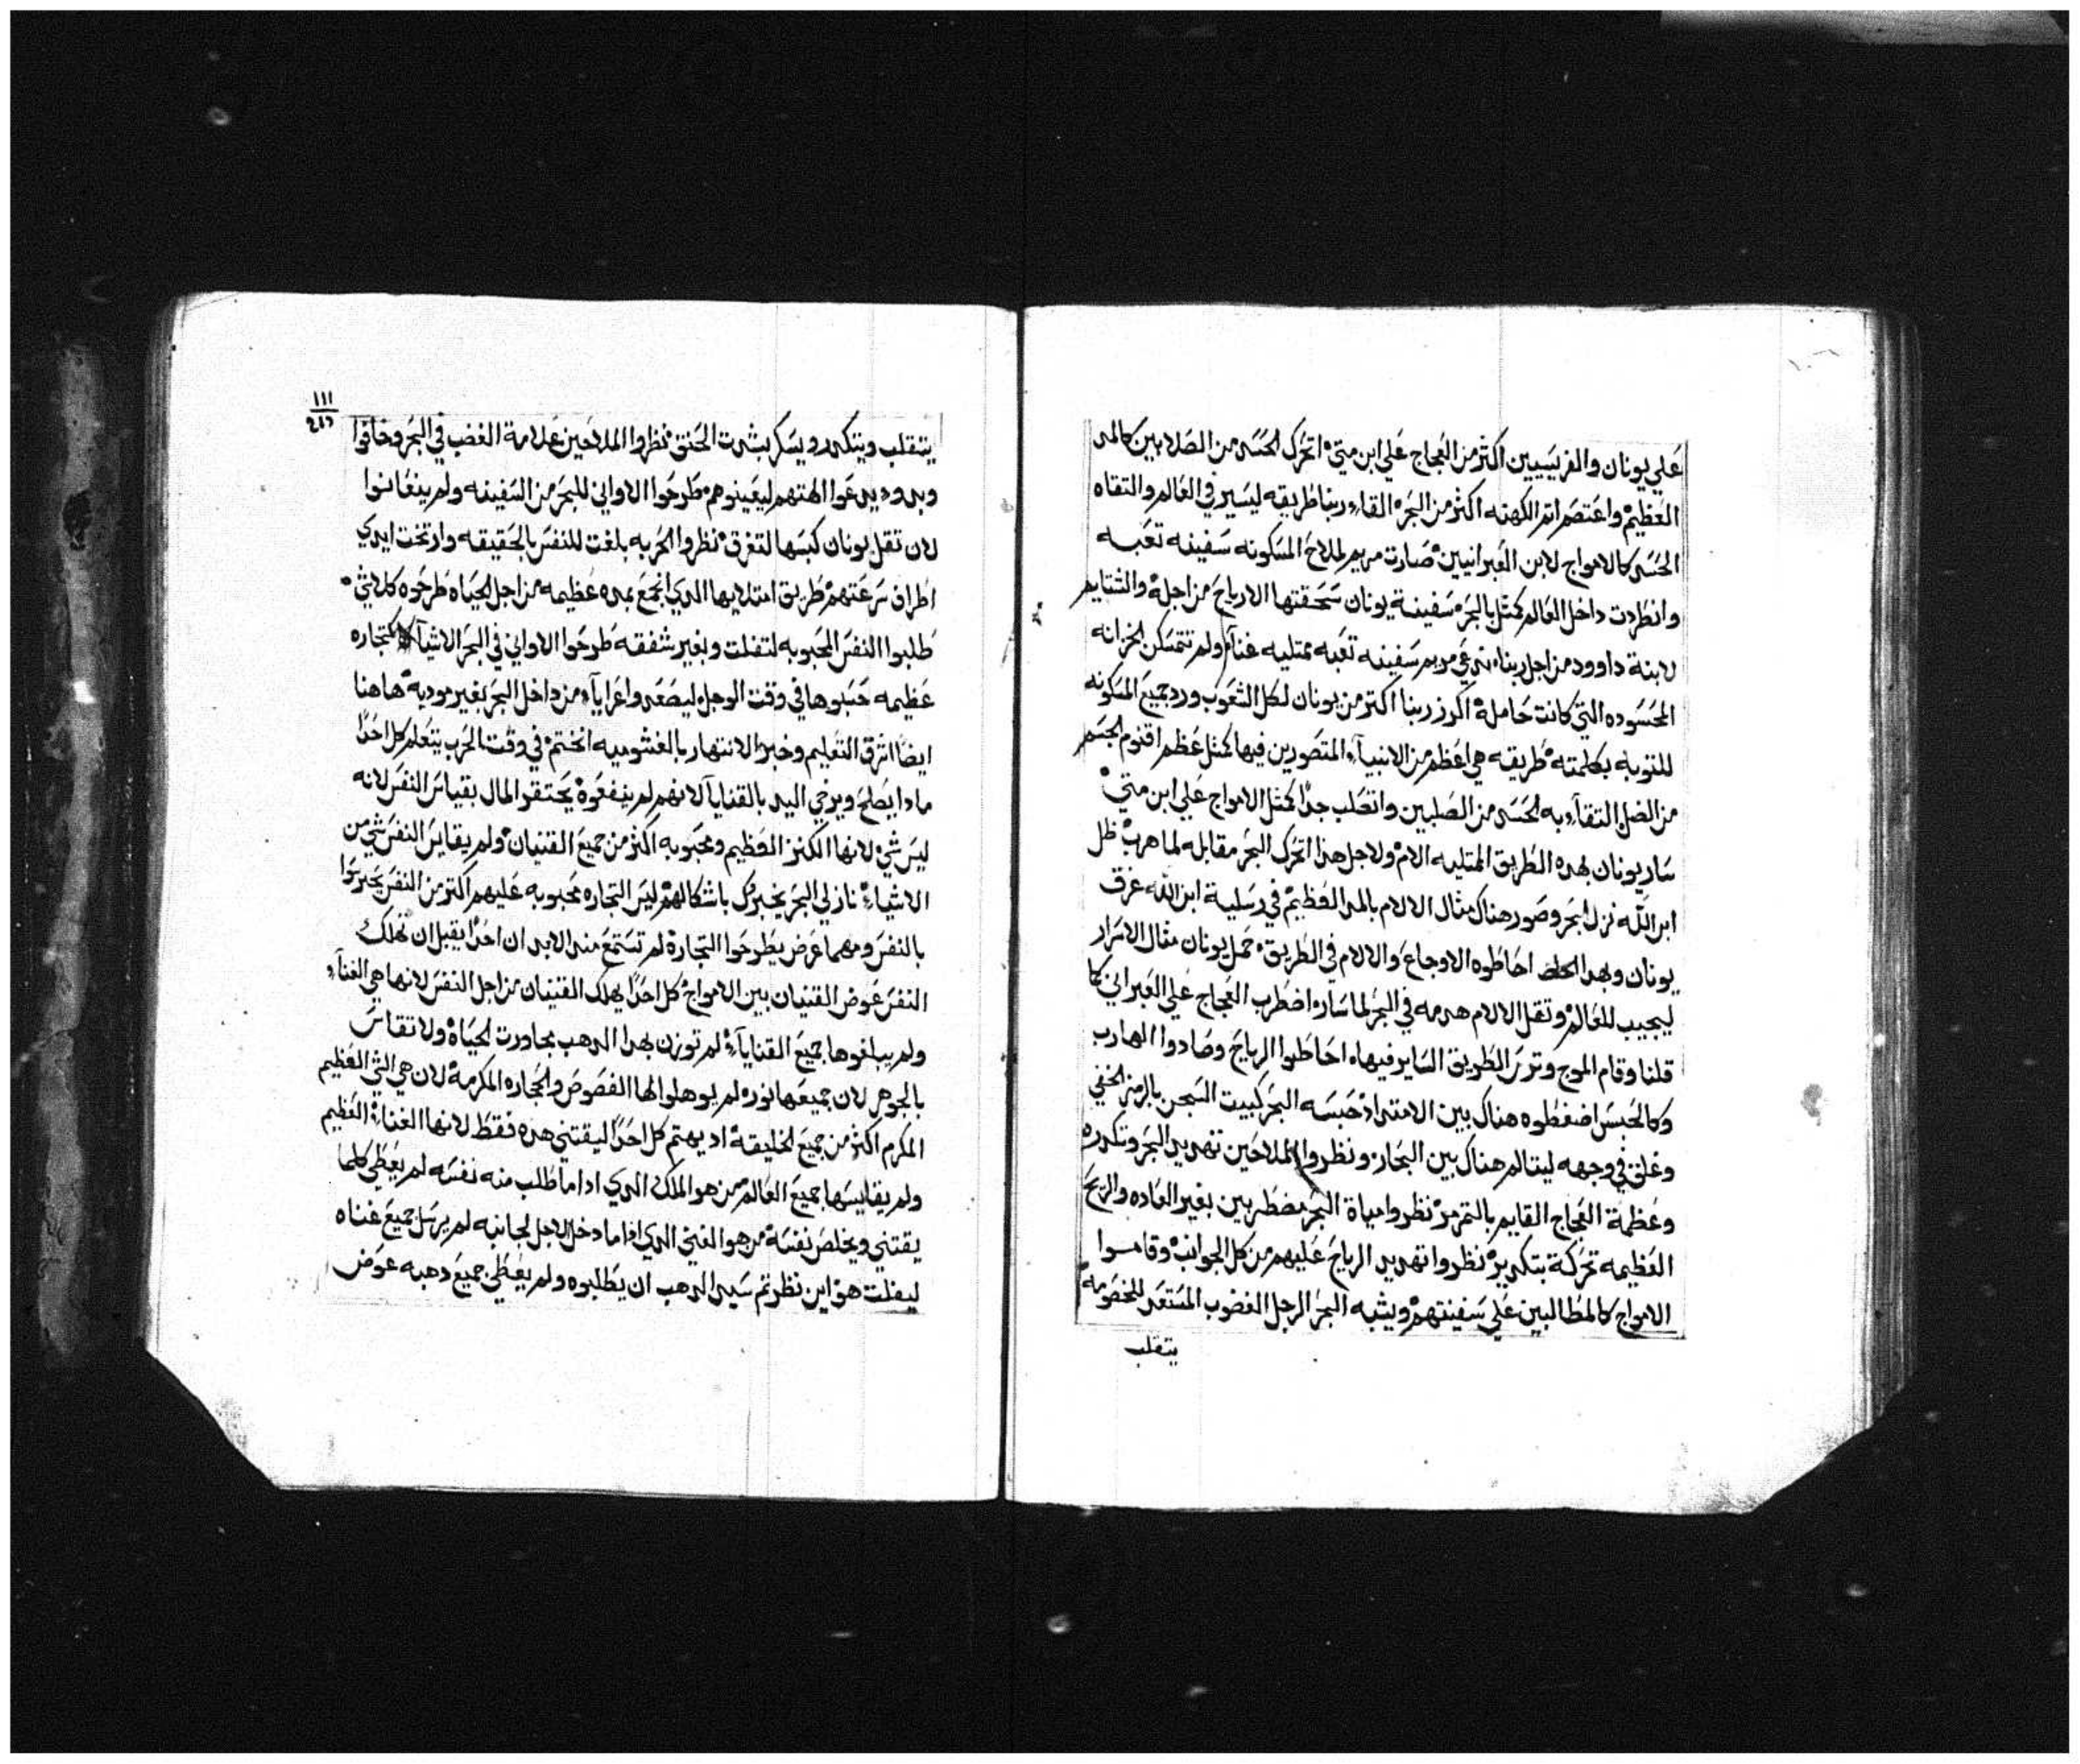 علي يونان والفريسيين اكثر من العجاج علي ابن متي اتحرك الحسد من الصلابين كالمد
العظيم واعتصم اتم الكهنه اكثر من البحر القاء ربنا طريقه ليسير في العالم والتقاه
الحسد كالامواج لابن العبرانيين صارت مريم لملاح المسكونه سفينه تعبه
وانطردت داخل العالم كمثل بالبحر سفينة يونان سحقتها الارياح من اجله والشتايم
لابنة داوود من اجل ربنا تدعي مريم سفينه تعبه ممتليه غناء ولم تتمسكن الخزانه
المحسوده التي كانت حامله اكرز ربنا اكتر من يونان لكل الشعوب ورد جميع المسكونه
للتوبه بكلمته طريقه هي اعظم من الانبياء المتصورين فيها كمثل عظم اقنوم الجسم
من الضل التقاء به الحسد من الصلبين واتصلب جدا كمثل الامواج علي ابن متي
سار يونان بهده الطريق الممتليه الام ولاجل هدا اتحرك البحر مقابله لما هرب ظل
ابن الله نزل البحر وصور هناك مثال الالام بالمد العظيم في رسلية ابن الله غرق
يونان وبهدا احاطوه الاوجاع والالام في الطريق حمل يونان مثال الاسرار
ليجيب للعالم وتقل الالام هدمه في البحر لما ساره اضطرب العجاج علي العبراني كما
قلنا وقام الموج وترس الطريق الساير فيهاه احاطوا الرياح وصادوا الهارب
وكالحبس اضغطوه هناك بين الامتداد حبسه البحر كبيت السجن بالرمز الخفي
وغلق في وجهه ليتالم هناك بين البحار ونظروا الملاحين تهديد البحر وتكدره
وعظمة العجاج القايم بالتمرمر نظروا مياة البحر مضطربين بغير العاده والريح
العظيمه تحركة بتكدير نظروا تهديد الرياح عليهم من كل الجوانب وقاموا
الامواج كالمطالبين علي سفينتهم ويشبه البحر الرجل الغضوب المستعد للخصومه
يتقلب
١١١
يتقلب ويتكدر ويسكر بشدت الحنق نظروا الملاحين علامة الغضب في البحر وخافوا
وبدود يدعوا الهتهم ليعينوهم طرحوا الاواني للبحر من السفينه ولم ينعانوا
لان تقل يونان كبسها لتغرق نظروا الحربه بلغت للنفس بالحقيقه وارتخت ايدي
اطراف سرعتهم طريق امتلايها الدي انجمع بمده عظيمه من اجل الحياه طرحوه كلاشي
طلبوا النفس المحبوبه لتفلت وبغير شفقه طرحوا الاواني في البحر الاشياء كتجاره
عظيمه حسبوها في وقت الوجل ليصعدوا عرايآء من داخل البحر بغير موديه هاهنا
ايضا اشرق التعليم وخبر الانتهار بالغشوميه انختم في وقت الحرب يتعلم كل احدا
مادا يصلح ويرخي اليد بالقنايا لانهم لم ينفعوه يحتقر المال بقياس النفس لانه
ليس شي لانها الكنز العظيم ومحبوبه اكثر من جميع القنيان ولم يقايس النفس شي من
الاشياء نازلي البحر يخبروك باشكالهم ليس التجاره محبوبه عليهم اكتر من النفس يحرسوا
بالنفس ومهما عرض يطرحوا التجارة لم تستمع مند الابد ان احدا يقبل ان تهلك
النفس عوض القنيان بين الامواج كل احدا يهلك القنيان من اجل النفس لانها هي الغناء
ولم يبلغوها جميع القنايآء لم توزن بهدا الدهب بمجاورت الحياه ولا تقاس
بالجوهر لان جميعها نوره لم يوهلوا لها الفصوص والحجاره المكرمة لان هي الشي العظيم
المكرم اكثر من جميع الخليقة اد يهتم كل احدا ليقتني هده فقط لانها الغناء العظيم
ولم يقايسها جميع العالم من هو الملك الدي اداما طلب منه نفسه لم يعطي كلما
يقتني ويخلص نفسه من هو الغني الدي اداما دخل الاجل لجانبه لم يرسل جميع غناه
ليفلت هو اين نظرتم سيد الدهب ان يطلبوه ولم يعطي جميع دهبه عوض